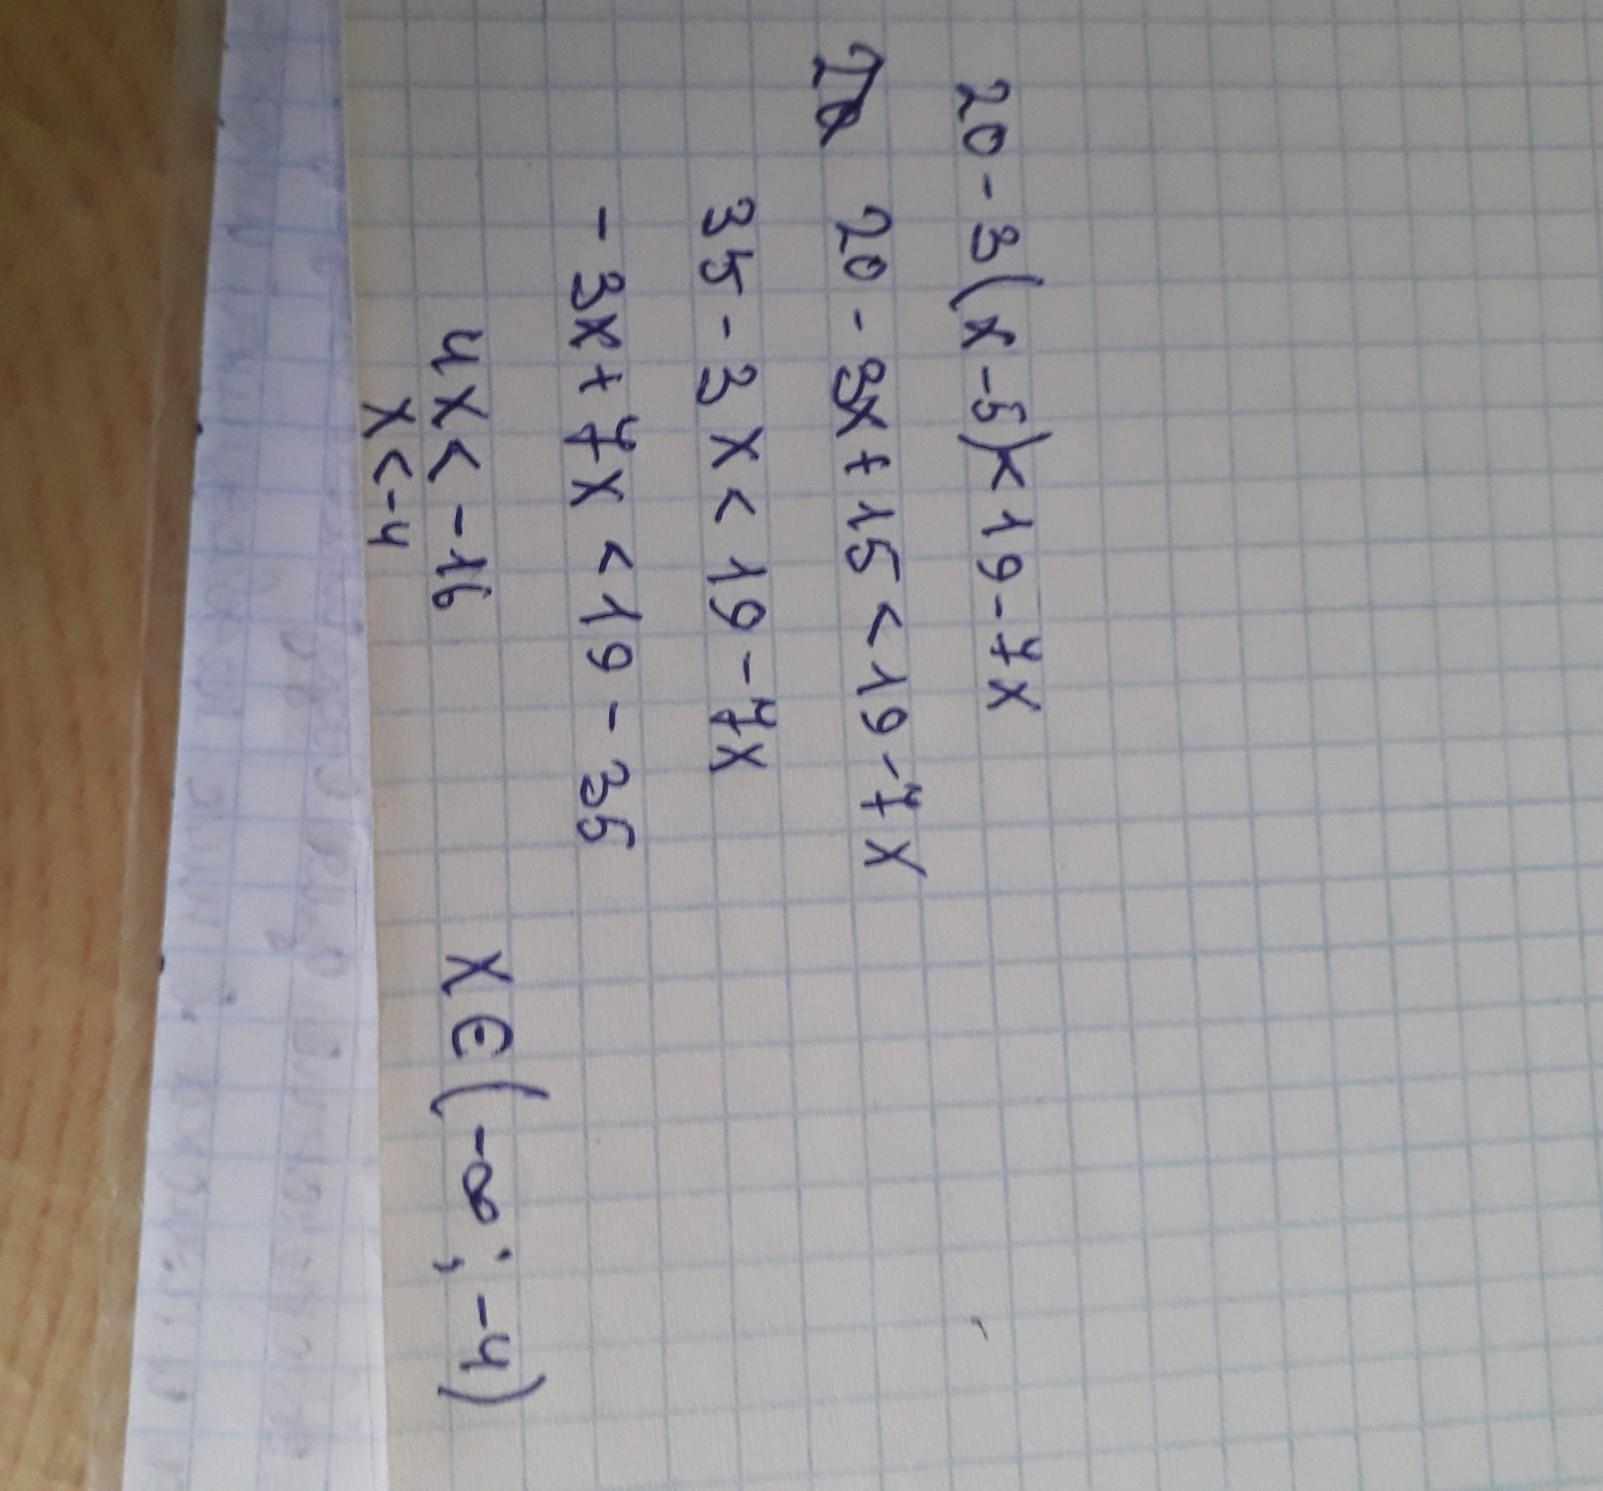 20 - 3(x - 5) < 19 - 7x
20 - 3x + 15 < 19 - 7x
35 - 3x < 19 - 7x
- 3x + 7x < 19 - 35
4x < -16
x < -4
x ∈ (-∞; -4)